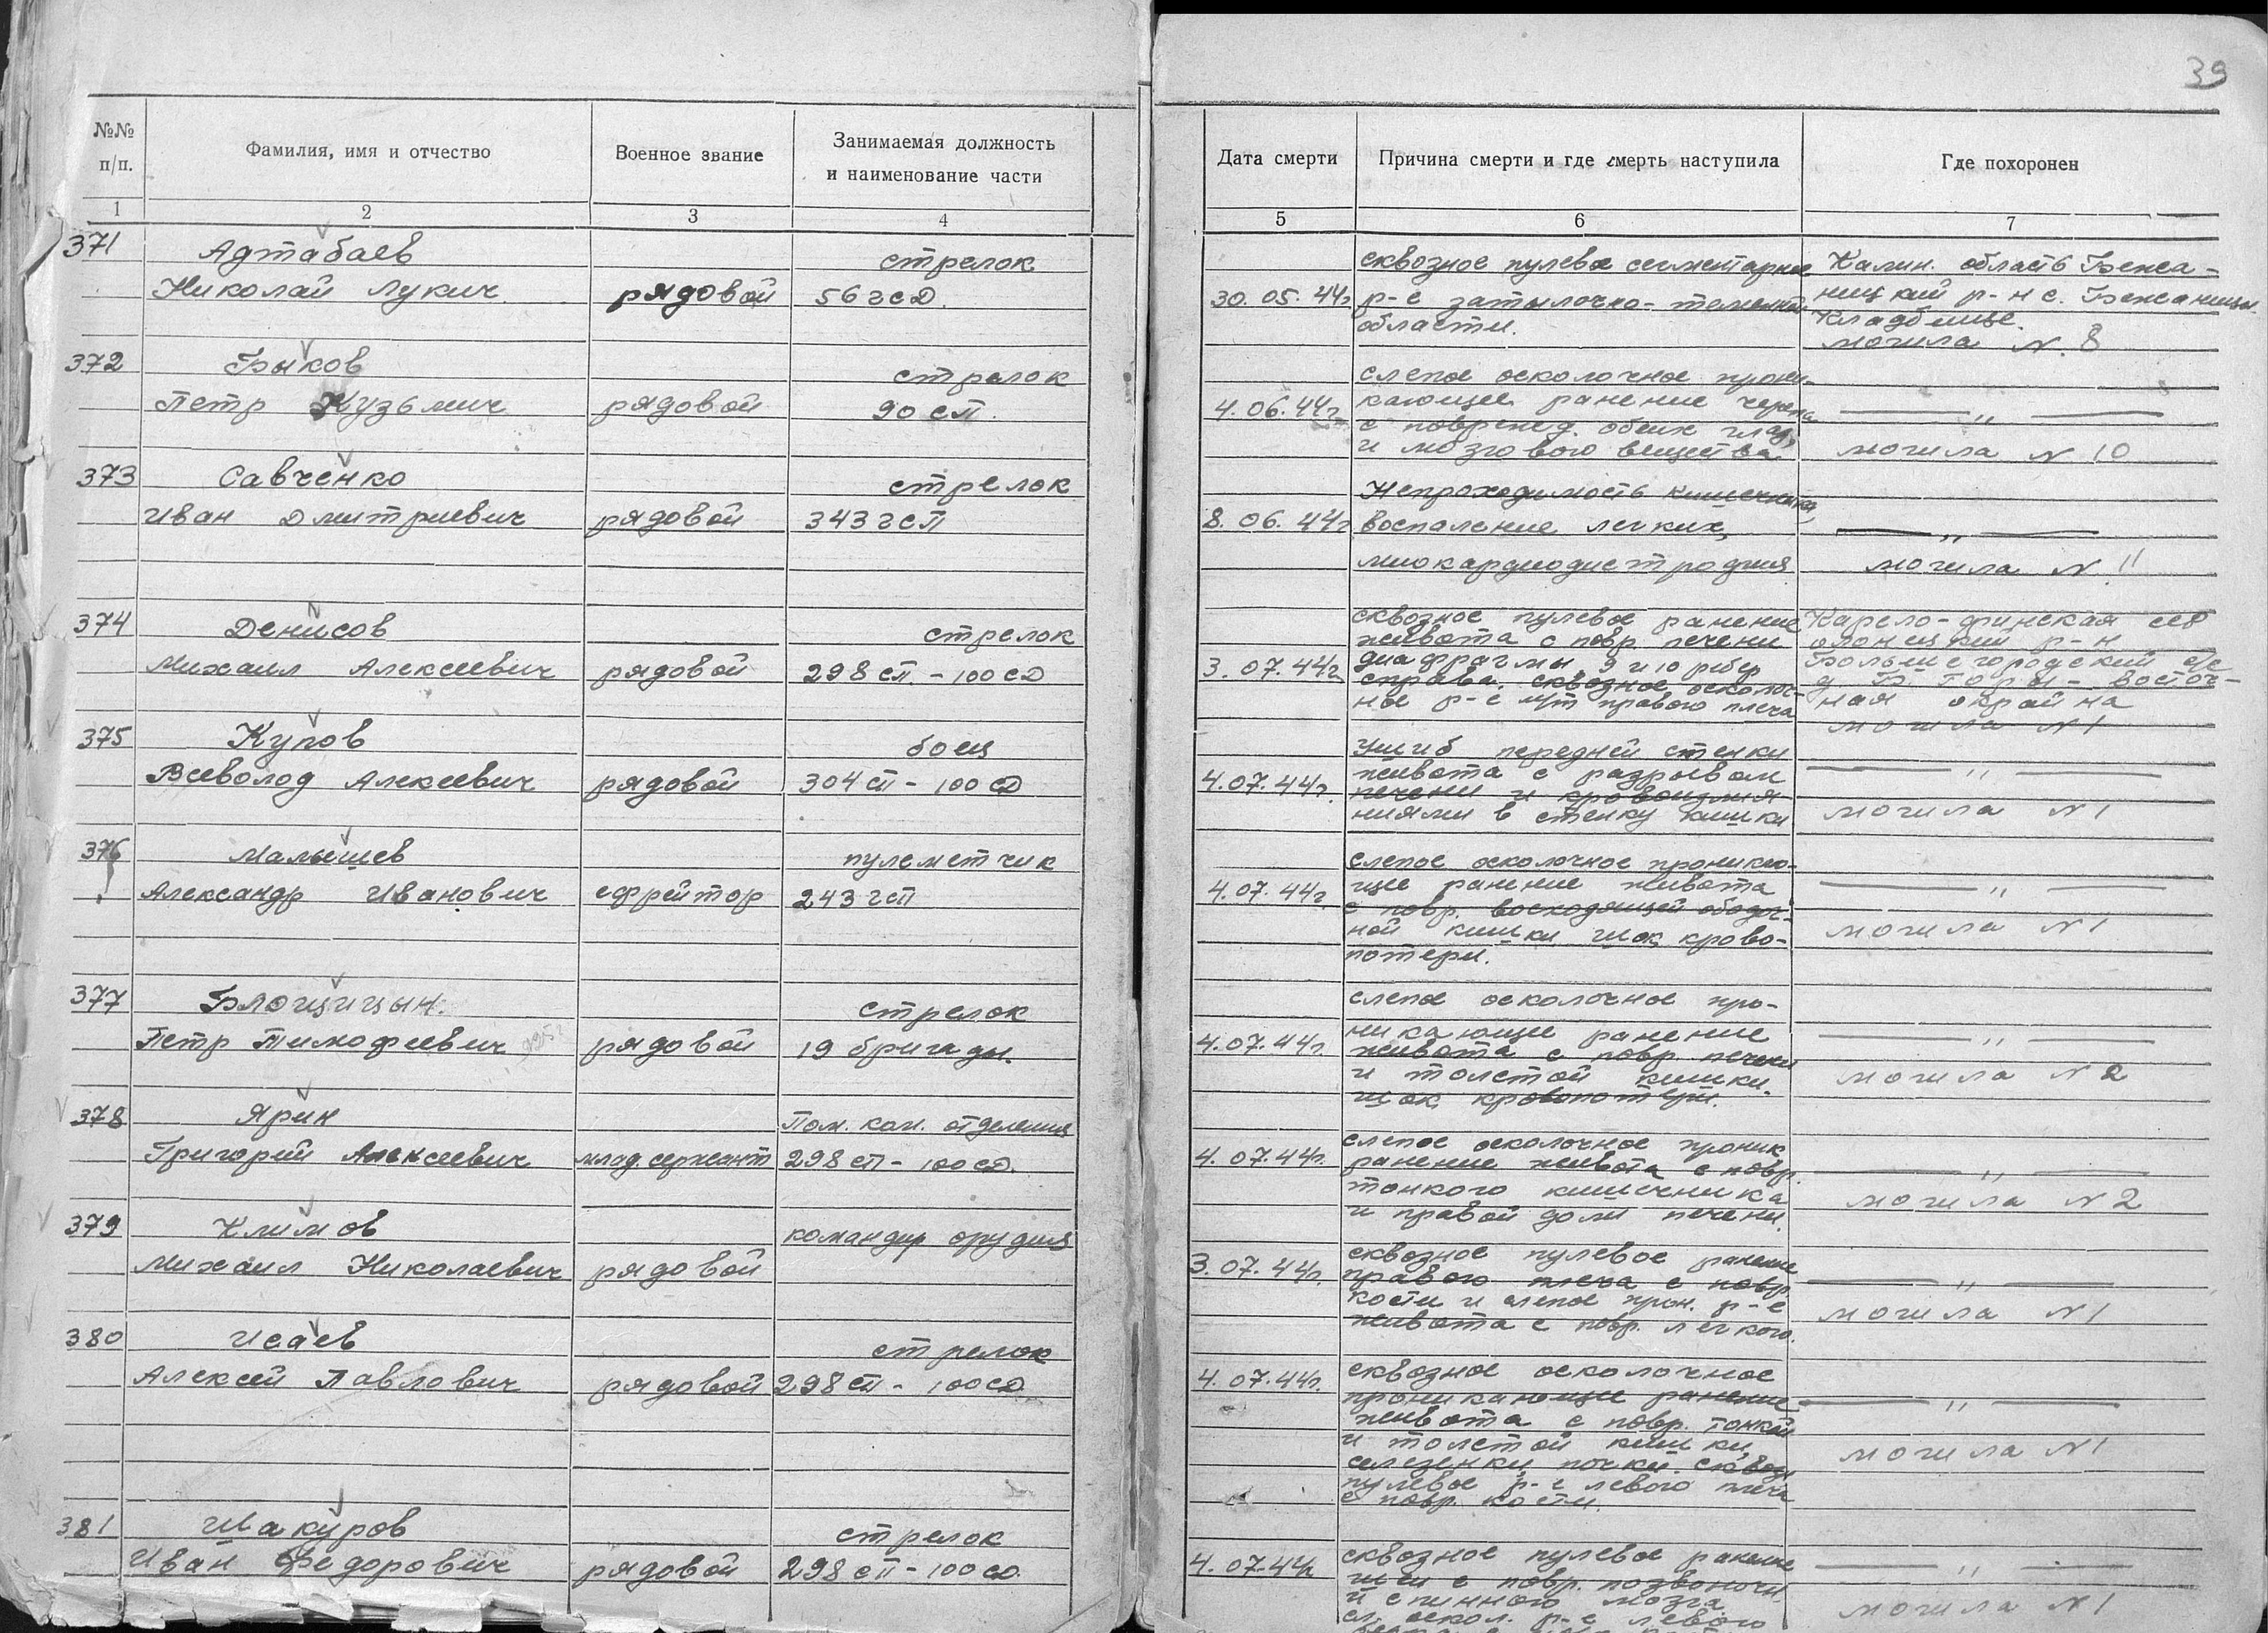 39
№№ п/п.
Фамилия, имя и отчество
Военное звание
Занимаемая должность и наименование части
Дата смерти
Причина смерти и где смерть наступила
Где похоронен
1 2 3 4 5 6 7
371
Адтабаев
Николай Лукич
рядовой
стрелок
56 гсд.
30.05.44г
сквозное пулевое сегментарное
р-е затылочно-теменной
области.
Калин. область Бежа-
ницкий р-н с. Бежаницы.
Кладбище.
могила N. 8
372
Быков
Петр Кузьмич
рядовой
стрелок
90 сп.
4.06.44г
слепое осколочное прони-
кающее ранение черепа
с поврежд. обеих глаз,
и мозгового вещества.
— " —
могила N 10
373
Савченко
Иван Дмитриевич
рядовой
стрелок
343 гсп
8.06.44г
Непроходимость кишечника,
воспаление легких,
миокардиодистрофия
— " —
могила N 11
374
Денисов
Михаил Алексеевич
рядовой
стрелок
298 сп. - 100 сд
3.07.44г
сквозное пулевое ранение
живота с повр. печени
диафрагмы 9 и 10 ребер
справа. сквозное осколоч-
ное р-е м/т правого плеча
Карело-финская ССР
олонецкий р-н
Большегородский с/с
д. Б. Горы - восточ-
ная окраина
могила N 1
375
Купов
Всеволод Алексеевич
рядовой
боец
304 сп - 100 сд
4.07.44г.
Ушиб передней стенки
живота с разрывом
печени и кровоизлия-
ниями в стенку кишки
— " —
могила N 1
376
Малышев
Александр Иванович
ефрейтор
пулеметчик
243 гсп
4.07.44г.
слепое осколочное проникаю-
щее ранение живота
с повр. восходящей ободоч-
ной кишки шок, крово-
потери.
— " —
могила N 1
377
Блощицын.
Петр Тимофеевич
рядовой
стрелок
19 бригады.
4.07.44г.
слепое осколочное про-
никающее ранение
живота с повр. печени
и толстой кишки.
шок, кровопотери.
— " —
могила N 2
378
Ярин
Григорий Алексеевич
млад. сержант
Пом. ком. отделения
298 сп - 100 сд.
4.07.44г.
слепое осколочное проник
ранение живота с повр.
тонкого кишечника
и правой доли печени.
— " —
могила N 2
379
Климов
Михаил Николаевич
рядовой
командир орудия
3.07.44г.
сквозное пулевое ранение
правого плеча с повр.
кости и слепое прон. р-е
живота с повр. легкого.
— " —
могила N 1
380
Исаев
Алексей Павлович
рядовой
стрелок
298 сп - 100 сд
4.07.44г.
сквозное осколочное
проникающее ранение
живота с повр. тонкой
и толстой кишки,
селезенки, почки. сквозн
пулевое р-е левого плеча
с повр. кости.
— " —
могила N 1
381
Шакуров
Иван Федорович
рядовой
стрелок
298 сп - 100 сд.
4.07.44г
сквозное пулевое ранение
шеи с повр. позвоночн.
и спинного мозга
сл. оскол. р-е левого
— " —
могила N 1